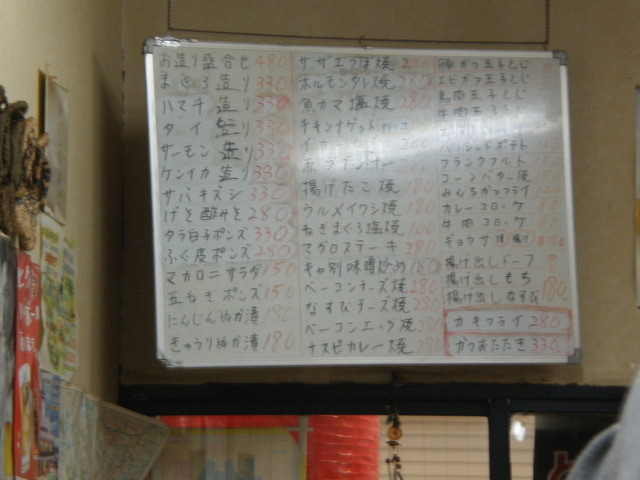 お造り盛合せ 480
まぐろ 造り 330
ハマチ 造り 330
タイ 造り 330
サーモン 造り 330
ケンイカ 造り 330
サバキズシ 330
げそ酢みそ 280
タラ白子ポンズ 330
ふぐ皮ポンズ 280
マカロニサラダ 150
玉ねぎポンズ 150
にんじんぬか漬 180
きゅうりぬか漬 180
サザエつぼ焼 280
ホルモンタレ焼 280
魚カマ塩焼 280
チキンナゲット
赤ウインナー
揚げたこ焼 180
ウルメイワシ焼 180
ねぎまぐろ塩焼 100
マグロステーキ 280
キャ別味噌炒め 180
ベーコンチーズ焼 280
なすびチーズ焼 280
ベーコンエッグ焼 280
ナスビカレー焼 280
豚かつ玉子とじ
エビかつ玉子とじ
馬肉玉子とじ
牛肉玉子とじ
フライドポテト
フランクフルト
コーンバター焼
みんちかつフライ
カレーコロッケ
牛肉コロッケ
ギョウザ 焼 揚げ 180
揚げ出しドーフ
揚げ出しもち
揚げ出しなすび 180
カキフライ 280
かつおたたき 330